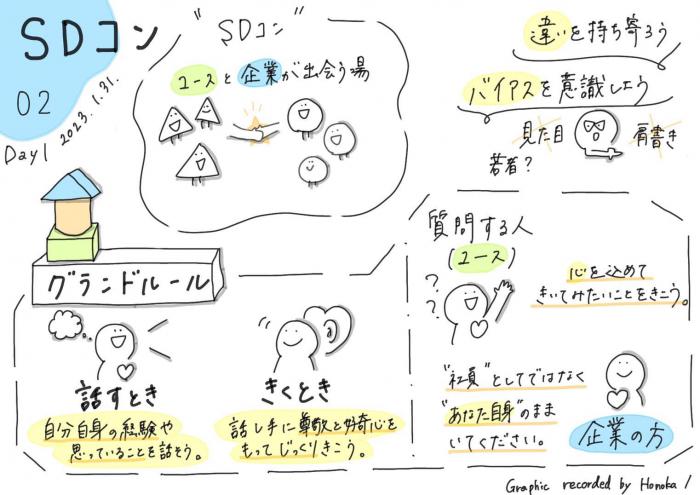 SDコン
02
Day1 2023.1.31.
"SDコン"
ユースと企業が出会う場
違いを持ち寄ろう
バイアスを意識しよう
見た目
肩書き
若者?
グランドルール
話すとき
自分自身の経験や
思っていることを話そう。
きくとき
話し手に尊敬と好奇心を
もってじっくりきこう。
質問する人
(ユース)
? ? ?
心を込めて
きいてみたいことをきこう。
"社員"としてではなく
"あなた自身"のまま
いてください。
企業の方
Graphic recorded by Honoka /